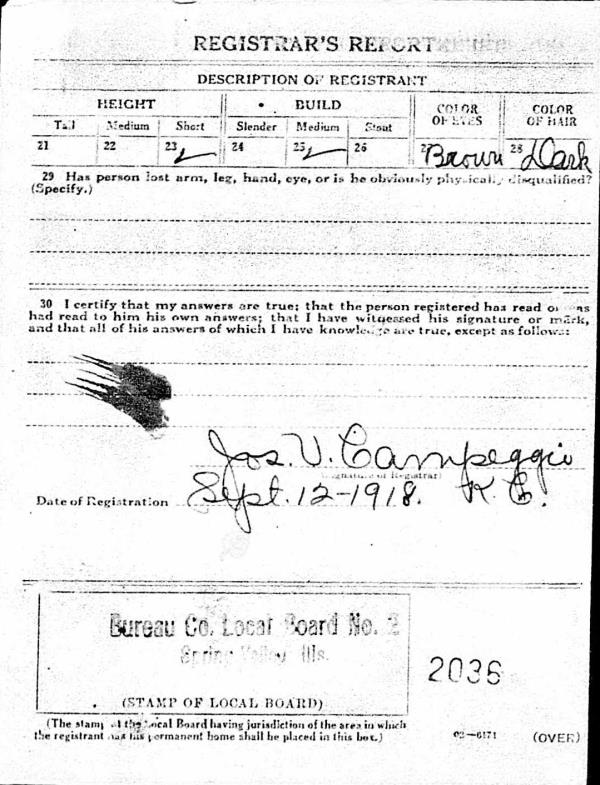 REGISTRAR'S REPORT
DESCRIPTION OF REGISTRANT
HEIGHT BUILD COLOR OF EYES COLOR OF HAIR
Tall Medium Short Slender Medium Stout
21 22 23 24 25 26 27 Brown 28 Dark
29 Has person lost arm, leg, hand, eye, or is he obviously physically disqualified?
(Specify.)
30 I certify that my answers are true; that the person registered has read or has
had read to him his own answers; that I have witnessed his signature or mark,
and that all of his answers of which I have knowledge are true, except as follows:
Jos. V. Campeggio
(Signature of Registrar)
Date of Registration Sept. 12-1918.
Bureau Co. Local Board No. 2
Spring Valley Ills.
2036
(STAMP OF LOCAL BOARD)
(The stamp of the Local Board having jurisdiction of the area in which
the registrant has his permanent home shall be placed in this box.)
02-6171 (OVER)